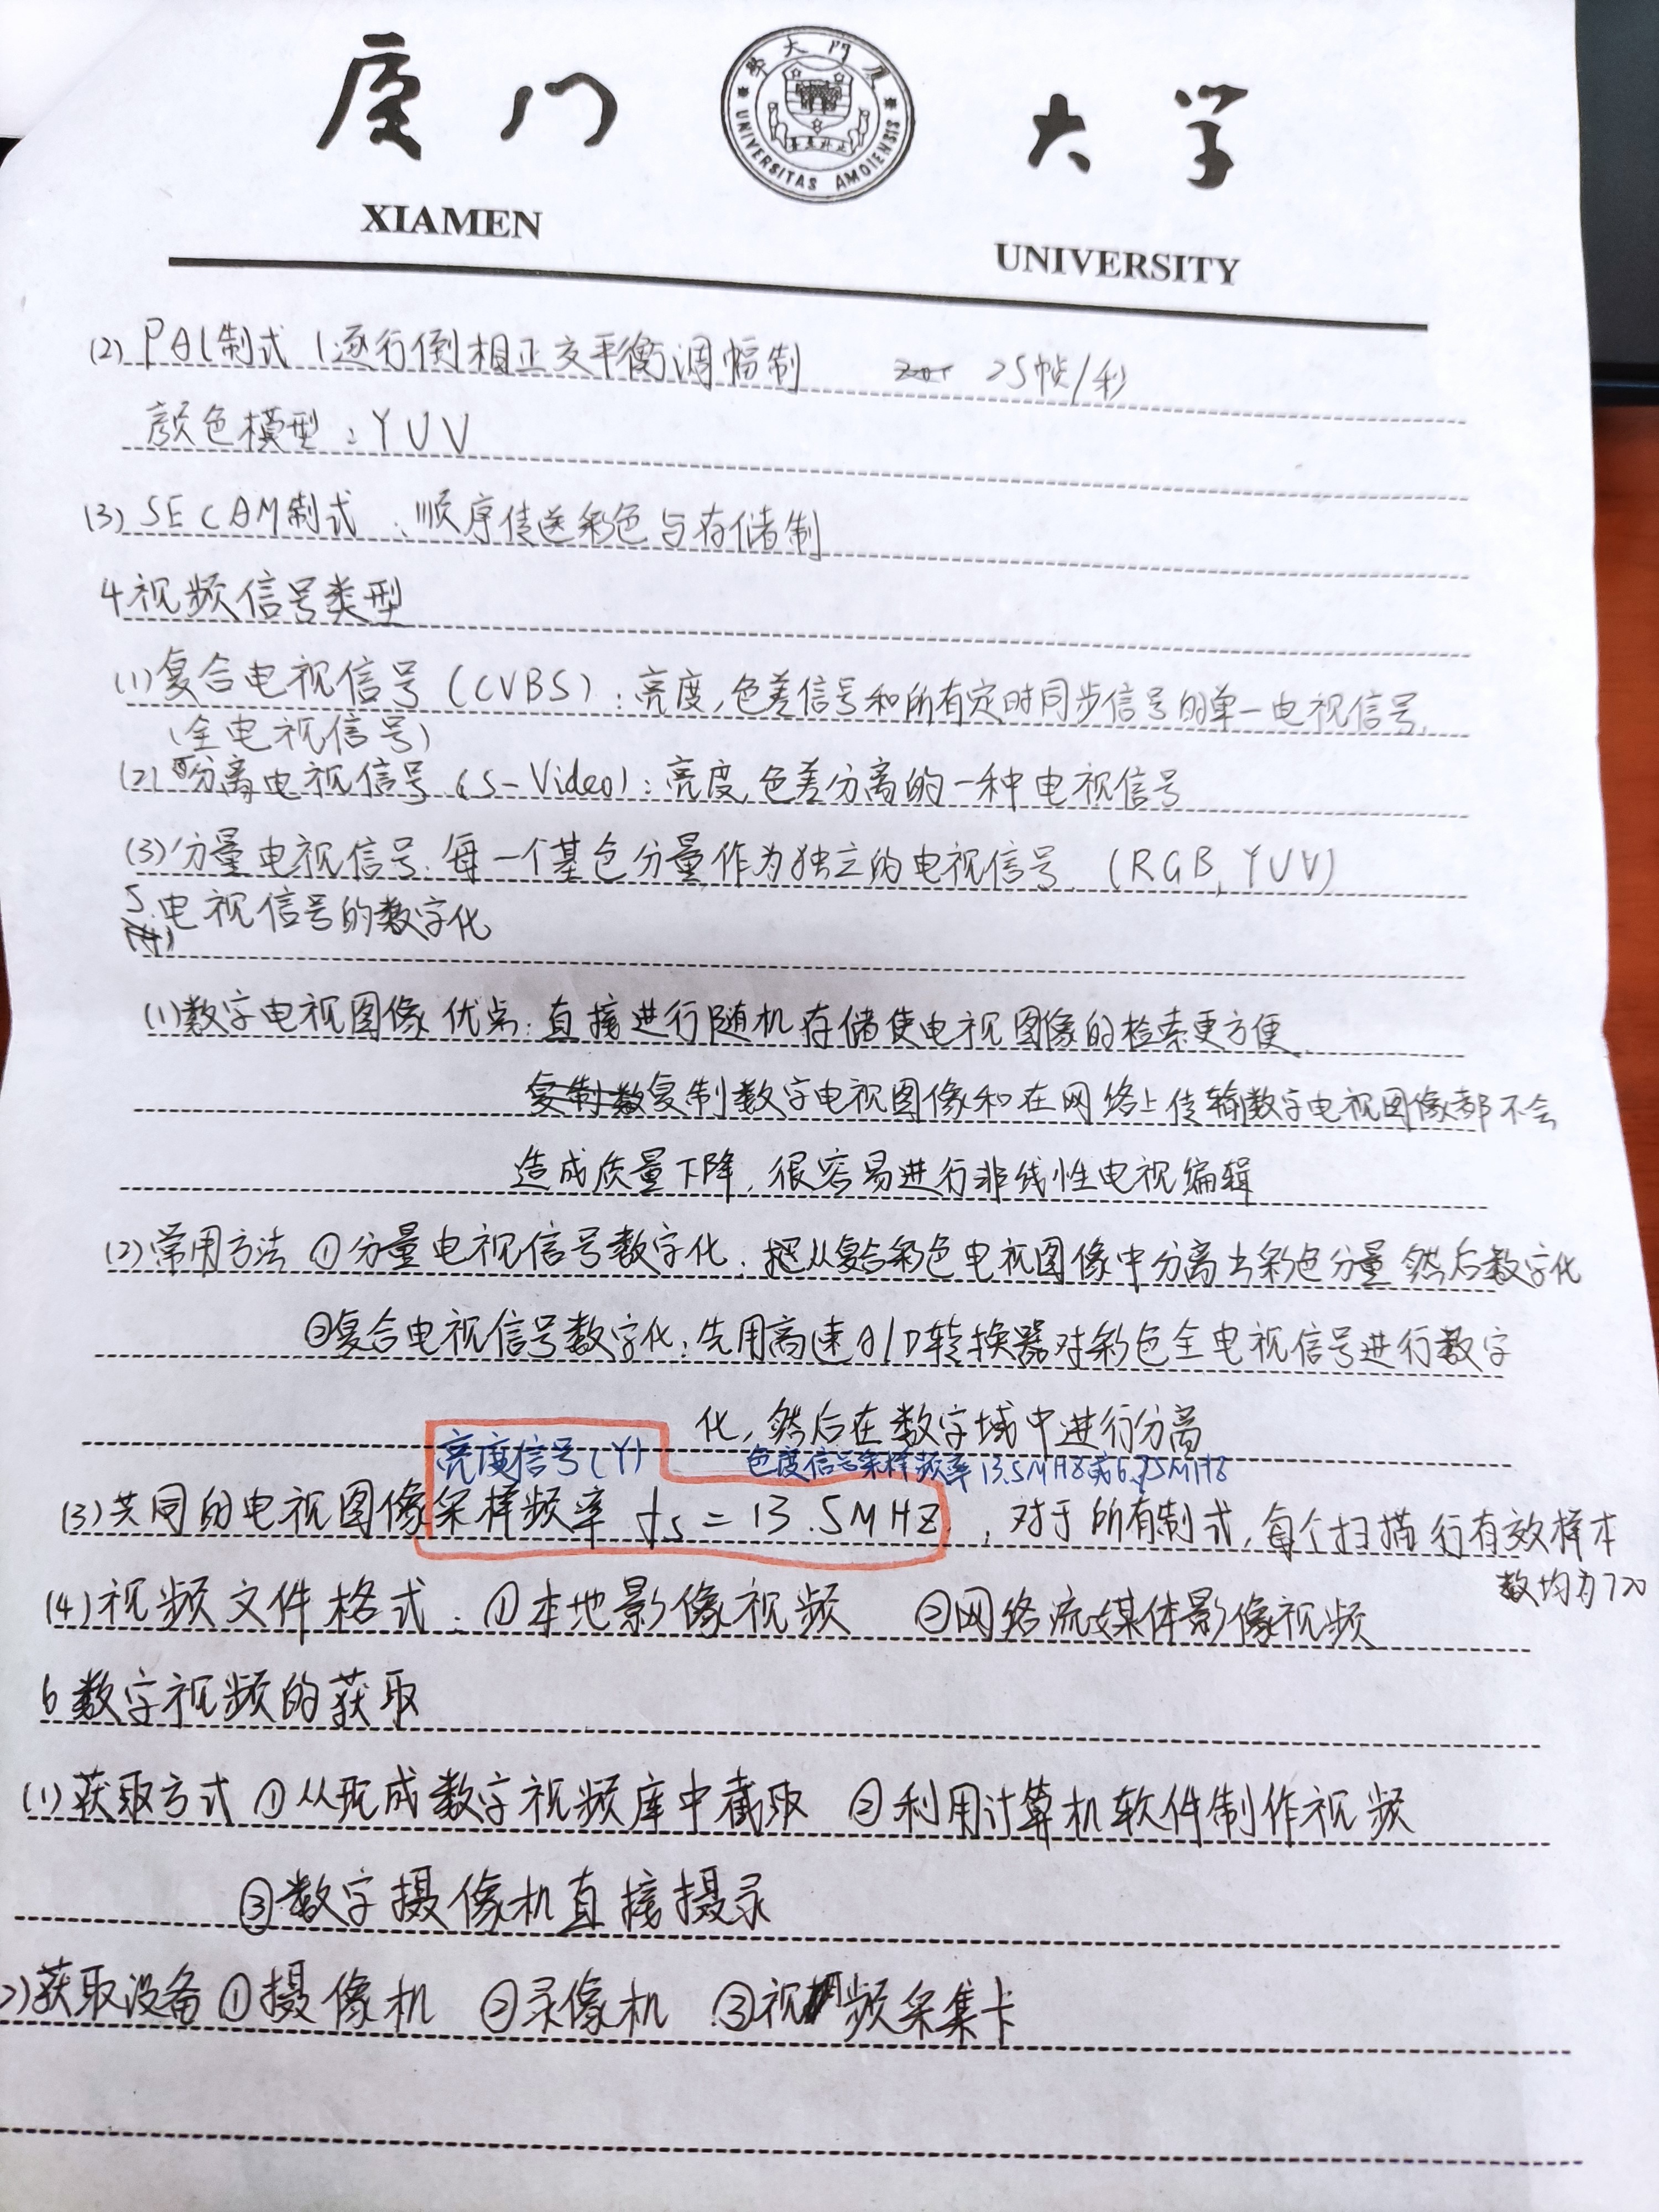 厦门大学
厦大門厦
UNIVERSITAS AMOIENSIS
XIAMEN UNIVERSITY
(2) PAL制式 (逐行倒相正交平衡调幅制 25帧/秒
颜色模型：YUV
(3) SECAM制式：顺序传送彩色与存储制
4 视频信号类型
(1) 复合电视信号 (CVBS)：亮度,色差信号和所有定时同步信号的单一电视信号.
(全电视信号)
(2) 分离电视信号 (S-Video)：亮度,色差分离的一种电视信号
(3) 分量电视信号：每一个基色分量作为独立的电视信号. (RGB, YUV)
5. 电视信号的数字化
(1) 数字电视图像优点：直接进行随机存储使电视图像的检索更方便
复制数字电视图像和在网络上传输数字电视图像都不会
造成质量下降, 很容易进行非线性电视编辑
(2) 常用方法 ①分量电视信号数字化：把从复合彩色电视图像中分离出彩色分量 然后数字化
②复合电视信号数字化：先用高速A/D转换器对彩色全电视信号进行数字
化, 然后在数字域中进行分离
亮度信号(Y) 色度信号采样频率13.5MHz或6.75MHz
(3) 共同的电视图像采样频率 fs = 13.5MHZ, 对于所有制式, 每个扫描行有效样本
数均为720
(4) 视频文件格式：①本地影像视频 ②网络流媒体影像视频
6 数字视频的获取
(1) 获取方式 ①从现成数字视频库中截取 ②利用计算机软件制作视频
③数字摄像机直接摄录
2) 获取设备 ①摄像机 ②录像机 ③视频采集卡